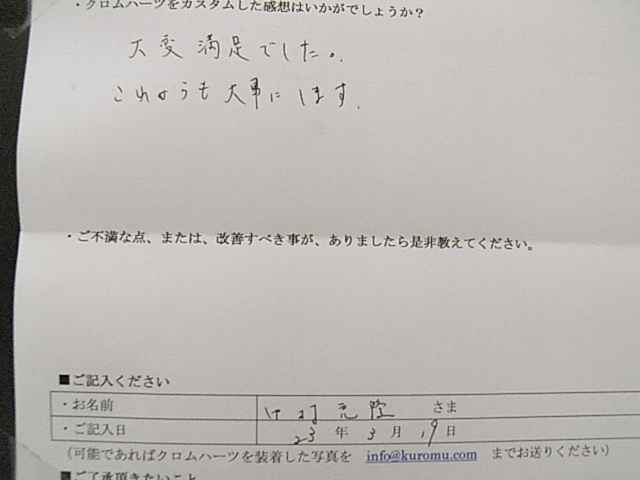 ・クロムハーツをカスタムした感想はいかがでしょうか？
大変満足でした。
これからも大事にします。
・ご不満な点、または、改善すべき事が、ありましたら是非教えてください。
■ご記入ください
・お名前 さま
・ご記入日 23年3月19日
（可能であればクロムハーツを装着した写真を info@kuromu.com までお送りください）
■ご了承頂きたいこと